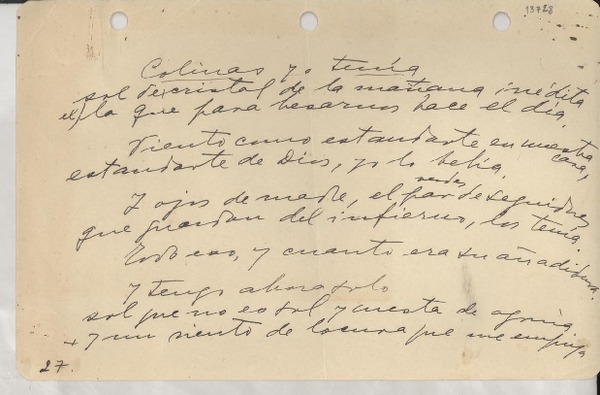 13728
Colinas yo tenía
sol de cristal de la mañana inédita
el/la que para besarnos hace el día.
Viento como estandarte en nuestra casa,
estandarte de Dios, yo lo bebía.
Y ojos de madre, el par de verdes seguidores
que guardan del infierno, los tenía.
Todo eso, y cuanto era su añadidura.
Y tengo ahora solo
sol que no es sol y cuesta de agonía
+ y un viento de locura que me empuja
27.